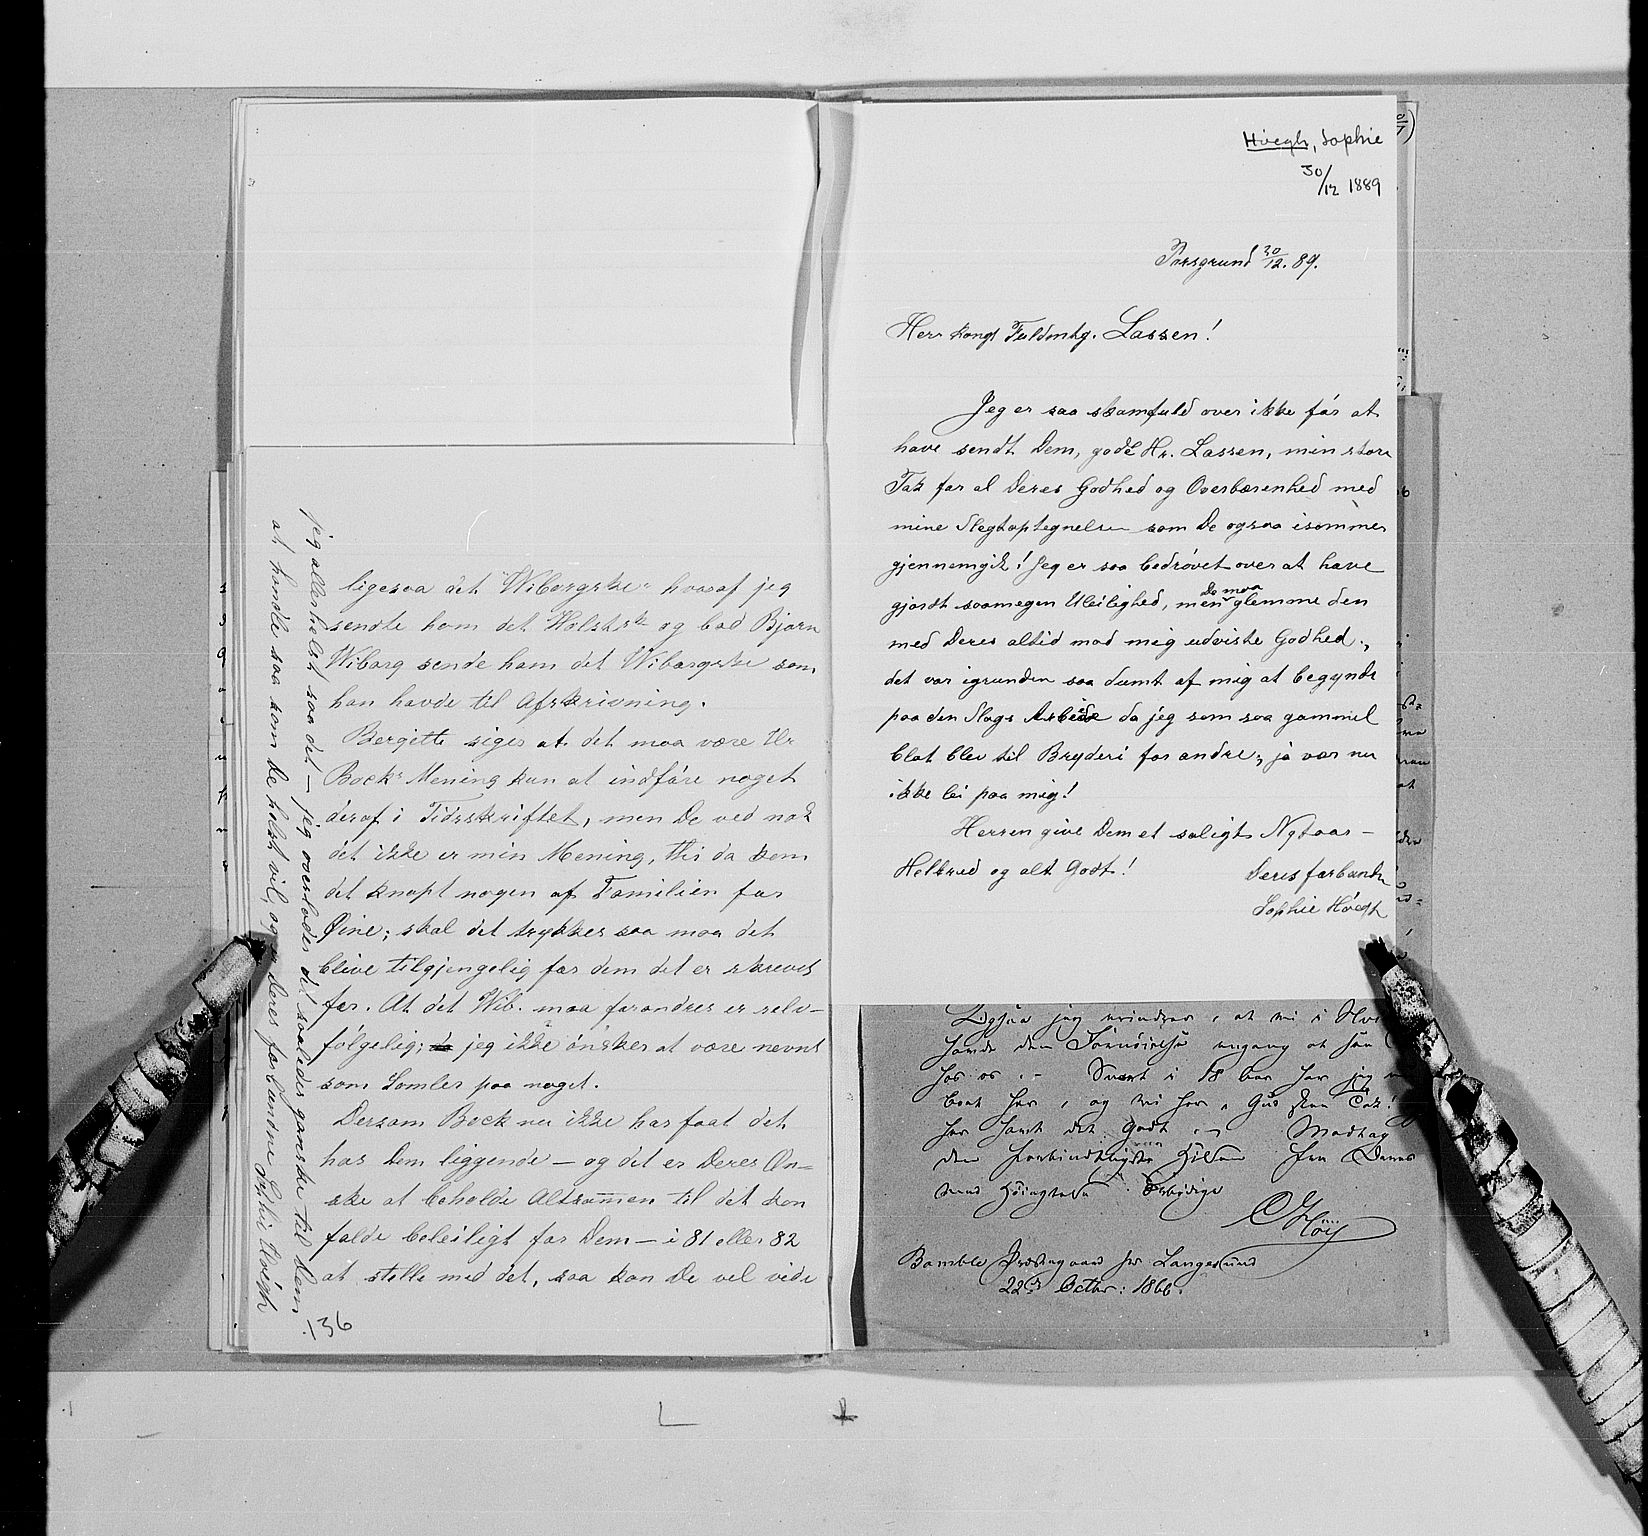 ligesaa det Wiborgske hvoraf jeg
sendte ham det Holstske og bad Bjørn
Wiborg sende ham det Wiborgske som
han havde til Afskrivning.
Bergitte siger at det maa være Hr
Bocks Mening kun at indføre noget
deraf i Tidsskriftet, men De ved nok
det ikke er min Mening, thi da kom
det knapt nogen af Familien for
Øine; skal det trykkes saa maa det
blive tilgjengelig for dem det er skrevet
for. At det Wib. maa forandres er selv-
følgelig; jeg ikke ønsker at være nevnt
som Samler paa noget.
Dersom Bock nu ikke har faat det
har Dem liggende — og det er Deres Øn=
ske at beholde Altsammen til det kan
falde beleiligt for Dem — i 81 eller 82
at stelle med det, saa kan De vel vide
jeg allerhelst saa det — jeg overlader det saaledes ganske til Dem
at handle saa som De helst vil, og er Deres forbundne Sophie Høegh
136
Høegh, Sophie
30/12 1889
Porsgrund 30/12. 89.
Herr kongl Fuldmtg. Lassen!
Jeg er saa skamfuld over ikke før at
have sendt Dem, gode Hr. Lassen, min store
Tak for al Deres Godhed og Overbærenhed med
mine Slegtoptegnelser som De ogsaa isommer
gjennemgik! Jeg er saa bedrøvet over at have
gjordt saamegen Uleilighed, men De maa glemme den
med Deres altid mod mig udviste Godhed;
det var igrunden saa dumt af mig at begynde
paa den Slags Arbeide da jeg som saa gammel
blot blev til Bryderi for andre; ja vær nu
ikke lei paa mig!
Herren give Dem et saligt Nytaar —
Helbred og alt Godt!
Deres forbundne
Sophie Høegh
jeg erindrer, at vi i
havde den Fornøielse engang at see
hos os. — Snart i 18 Aar har jeg
boet her, og vi har, Gud skee Tak!
her havt det godt. — Modtag
den forbindtligste Hilsen fra Deres
med Høiagtelse Erbødige
Høyy
Bamble Præstegaard pr Langesund
22d Octbr: 1866.